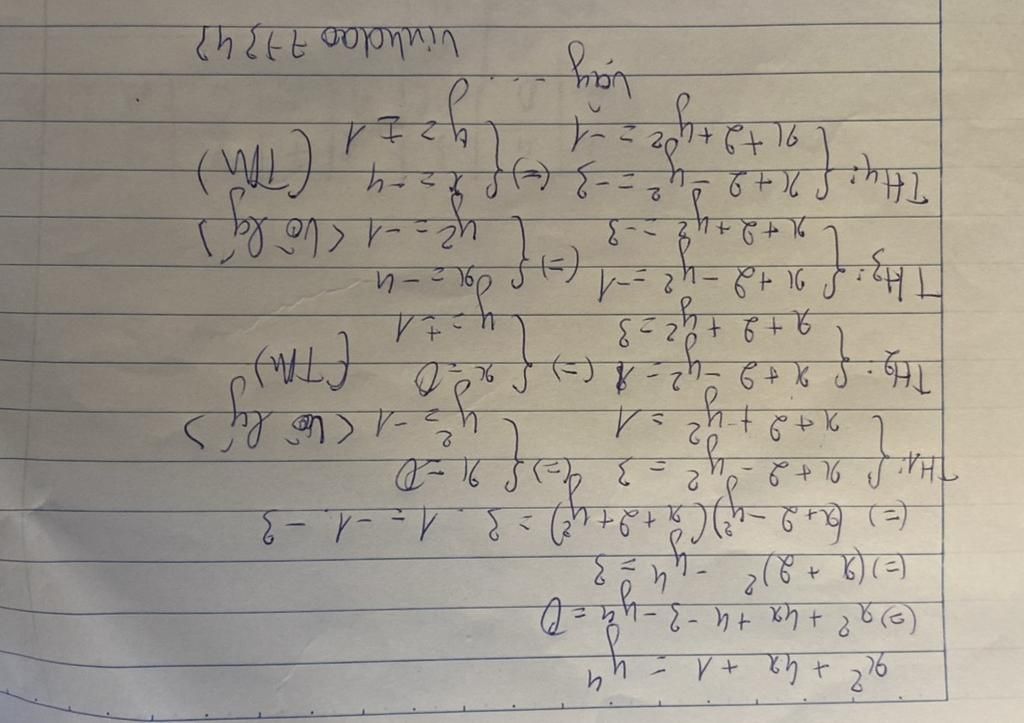 x² + 4x + 1 = y⁴
(=) x² + 4x + 4 - 3 - y⁴ = 0
(=) (x + 2)² - y⁴ = 3
(=) (x+2 - y²)(x+2+y²) = 3 . 1 = -1 . -3
TH1: { x+2 - y² = 3 (=) { x = 0
x+2 + y² = 1 y² = -1 <vô lý>
TH2: { x+2 - y² = 1 (=) { x = 0 (TM)
x+2 + y² = 3 y = ±1
TH3: { x+2 - y² = -1 (=) { x = -4
x+2+y² = -3 y² = -1 <vô lý>
TH4: { x+2 - y² = -3 (=) { x = -4 (TM)
x+2+y² = -1 y = ±1
Vậy ...
Vinhdao77347